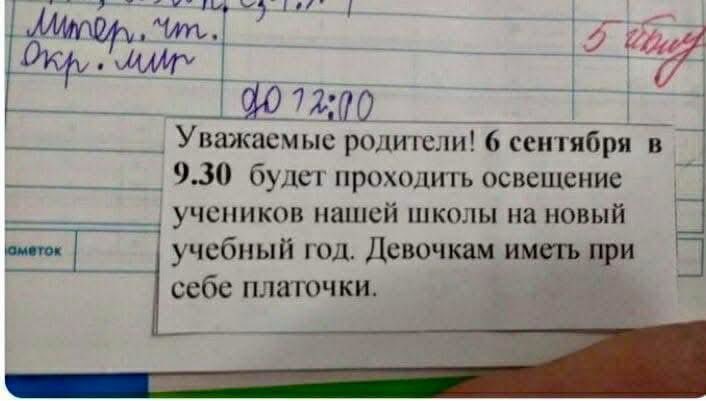 литер. чт.
Окр. мир
5
до 12:00
Уважаемые родители! 6 сентября в
9.30 будет проходить освещение
учеников нашей школы на новый
учебный год. Девочкам иметь при
себе платочки.
аметок